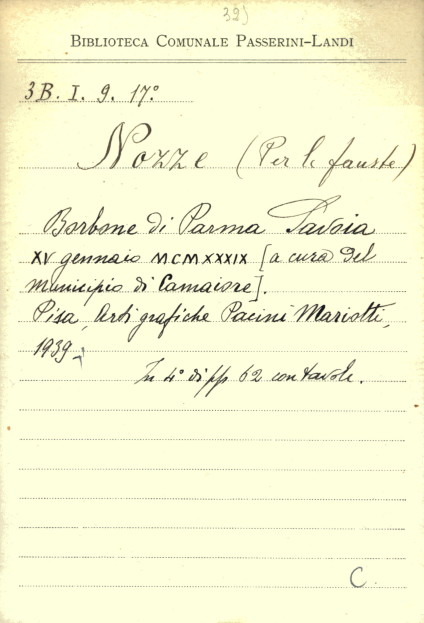 39)
BIBLIOTECA COMUNALE PASSERINI-LANDI
3B. I. 9. 17º
Nozze (Per le fauste)
Borbone di Parma Savoia
XV gennaio MCMXXXIX [a cura del
municipio di Camaiore].
Pisa, Arti grafiche Pacini Mariotti,
1939.
In 4º di pp 62 con tavole.
C.